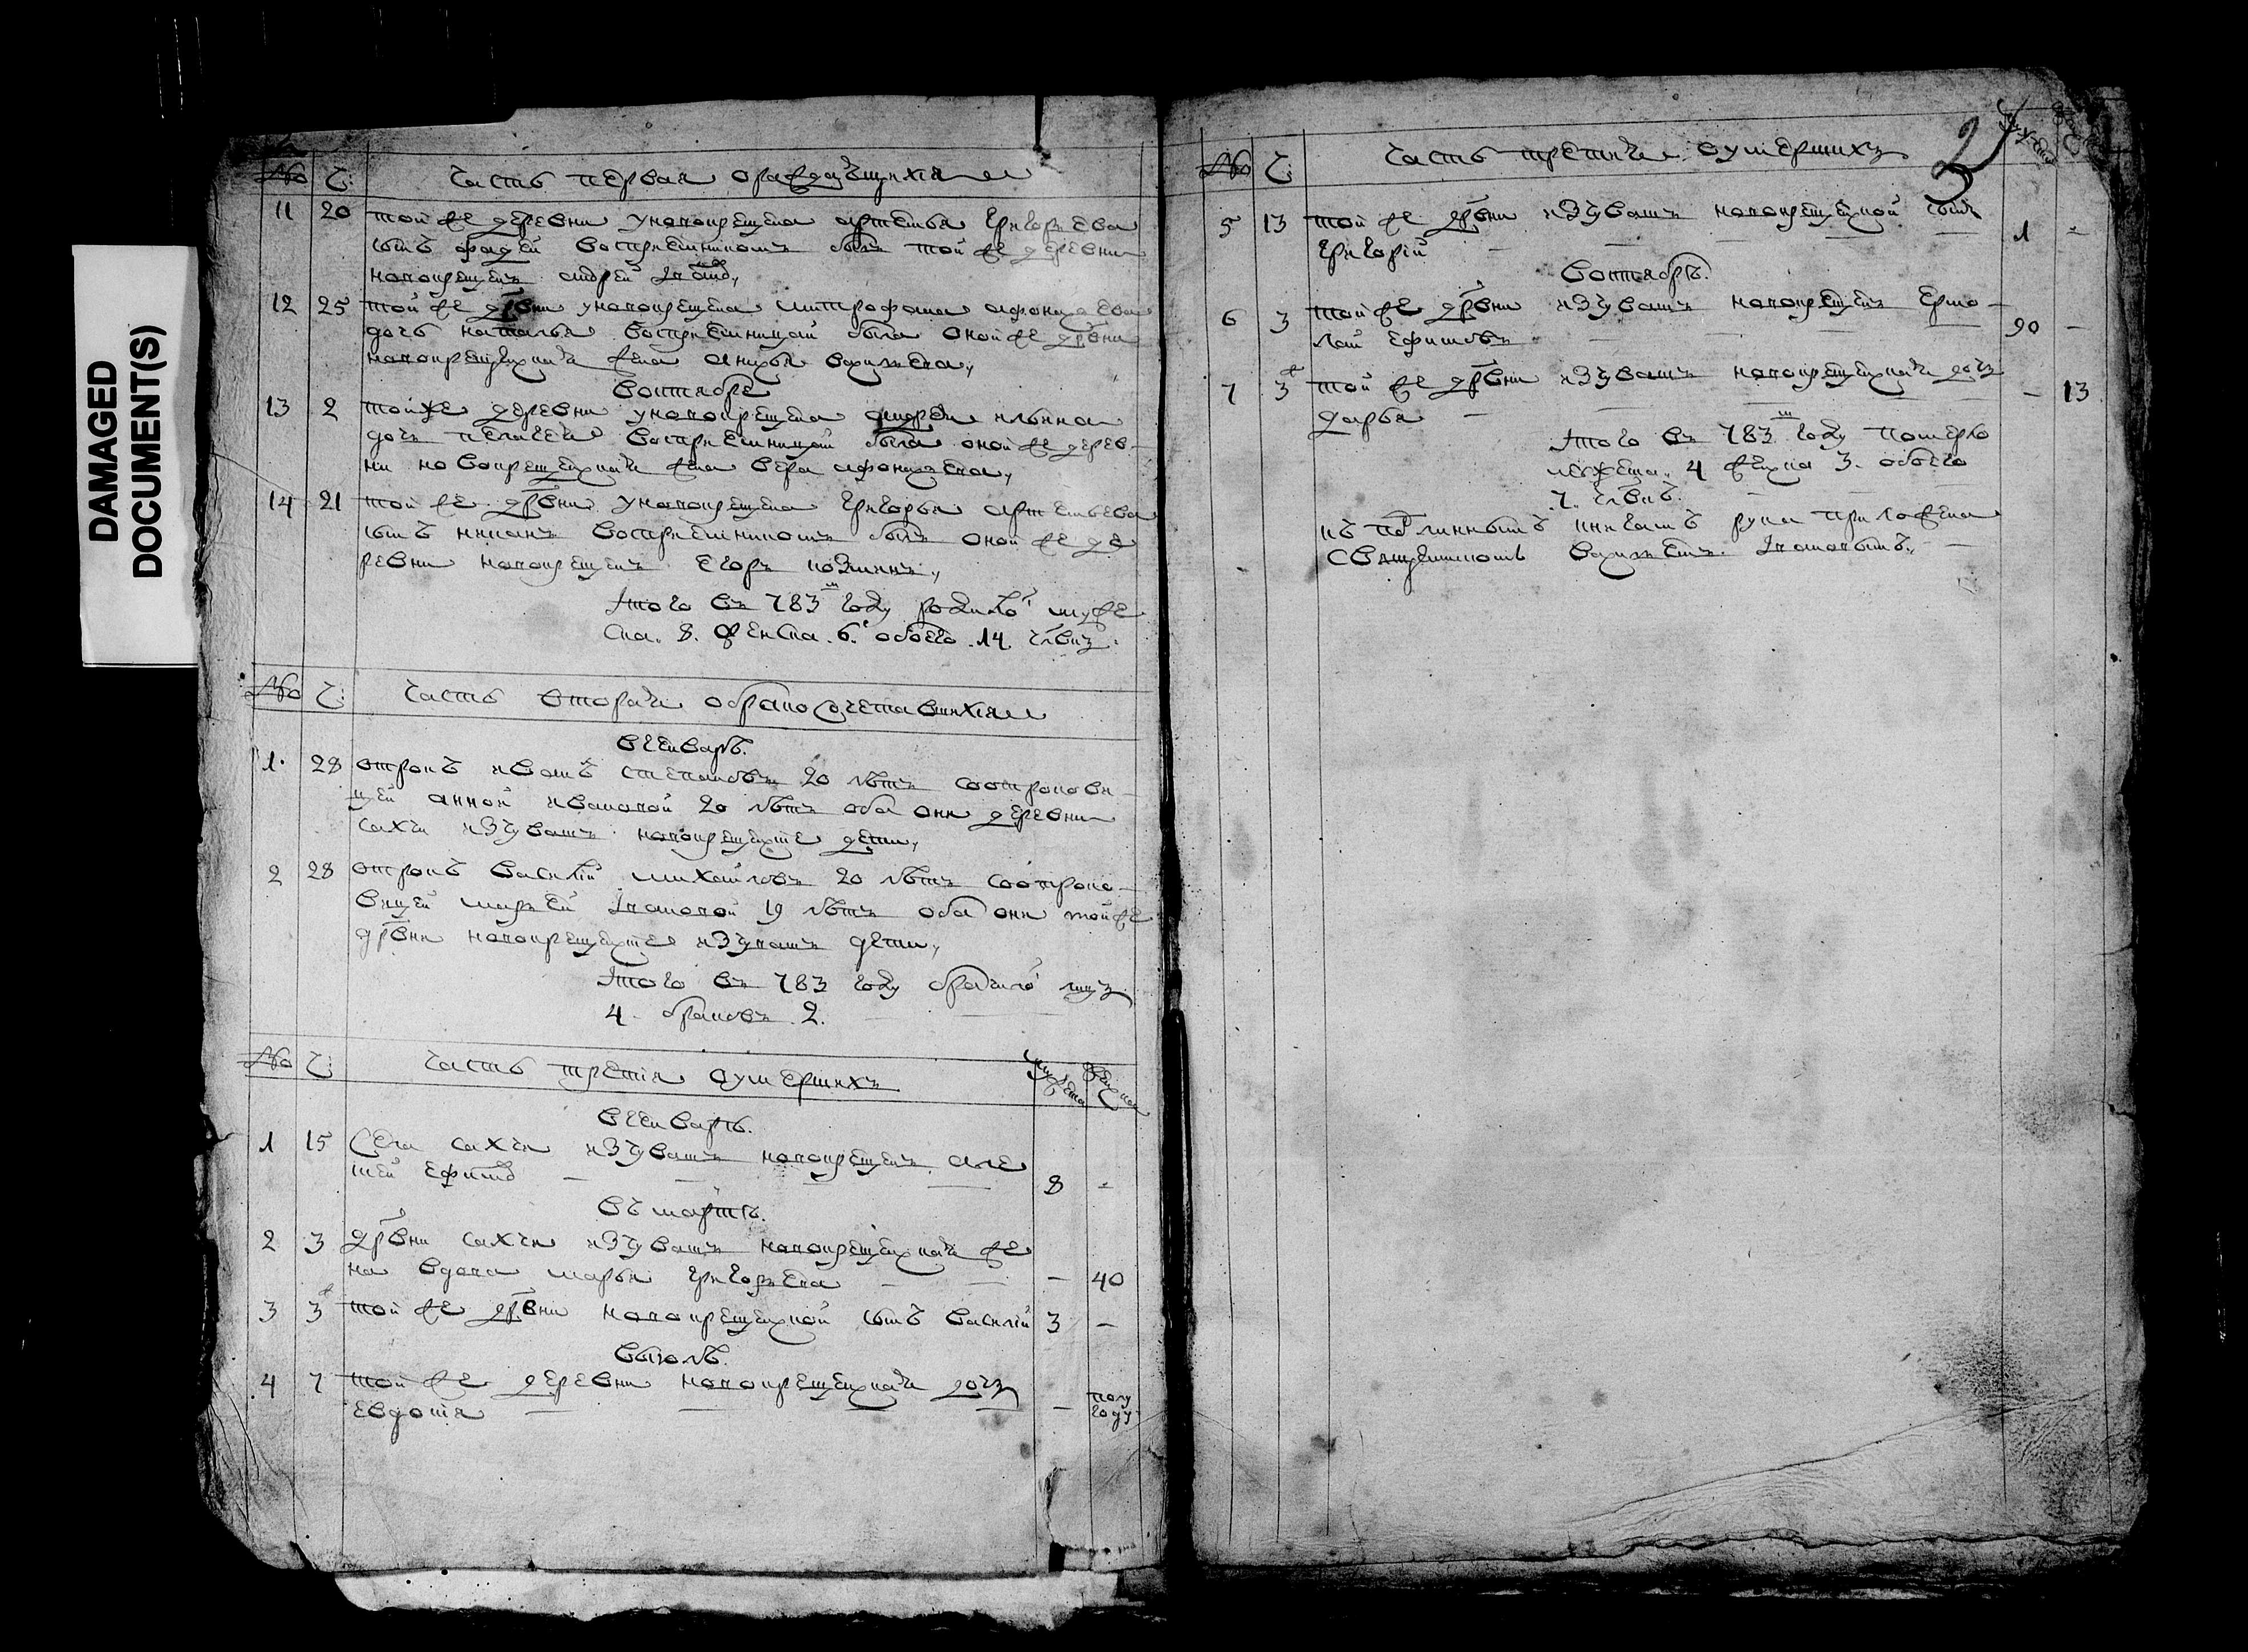 DAMAGED
DOCUMENT(S)
№ Ч: Часть первая ораждающихся
11 20 той же деревни у новокрещена артемья григорьева
сынъ фадей восприемникомъ былъ той же деревни
новокрещенъ андрей
12 25 той же дрвни у новокрещена митрофана афонасьева
дочь наталья восприемницей была оной же дрвни
новокрещенская жена васильева,
воктябре
13 2 тойже деревни у новокрещена андрея ильина
дочь пелагея восприемницей была оной же дерев-
ни новокрещенская жена вера афонасьева,
14 21 той же дрвни у новокрещена григорья артемьева
сынъ иванъ восприемникомъ былъ оной же де
ревни новокрещенъ егоръ козминъ,
Итого въ 783м году родилось муже
ска. 8. женска. 6. обоего 14. члвкъ.
№ Ч: Часть вторая обракосочетавшихся
вгенваръ.
1. 28 отрокъ иванъ степановъ 20 летъ соотрокови-
цей анной ивановой 20 летъ оба они деревни
сахчи изчувашъ новокрещенские дети,
2 28 отрокъ василий михайловъ 20 летъ соотроко-
вицей марьей 19 летъ оба они тойже
дрвни новокрещенские изчувашъ дети,
Итого въ 783 году брачилось муж
4. браковъ 2.
№ Ч: Часть третия оумершихъ мужеска женска
вгенваръ.
1 15 села сахчи изчувашъ новокрещенъ але
ксей ефимов 8 -
въ мартъ.
2 3 дрвни сахчи изчувашъ новокрещенская же
на вдова марья григорьева - 40
3 3 той же дрвни новокрещенской сынъ василий 3 -
виюлъ.
4 7 той же деревни новокрещенская дочь
евдокия - полу
году
№ Ч: Часть третия оумершихъ 2
5 13 той же дрвни изчувашъ новокрещенской сынъ
григорий 1 -
воктябръ.
6 3 той же дрвни изчувашъ новокрещенъ ермо-
лай ефимовъ 90 -
7 3 той же дрвни изчувашъ новокрещенская дочь
дарья - 13
Итого въ 783м году померло
мужеска. 4 женска 3. обоего
7. члвкъ.
къ подлиннымъ книгамъ рука приложена
священникомъ васильемъ